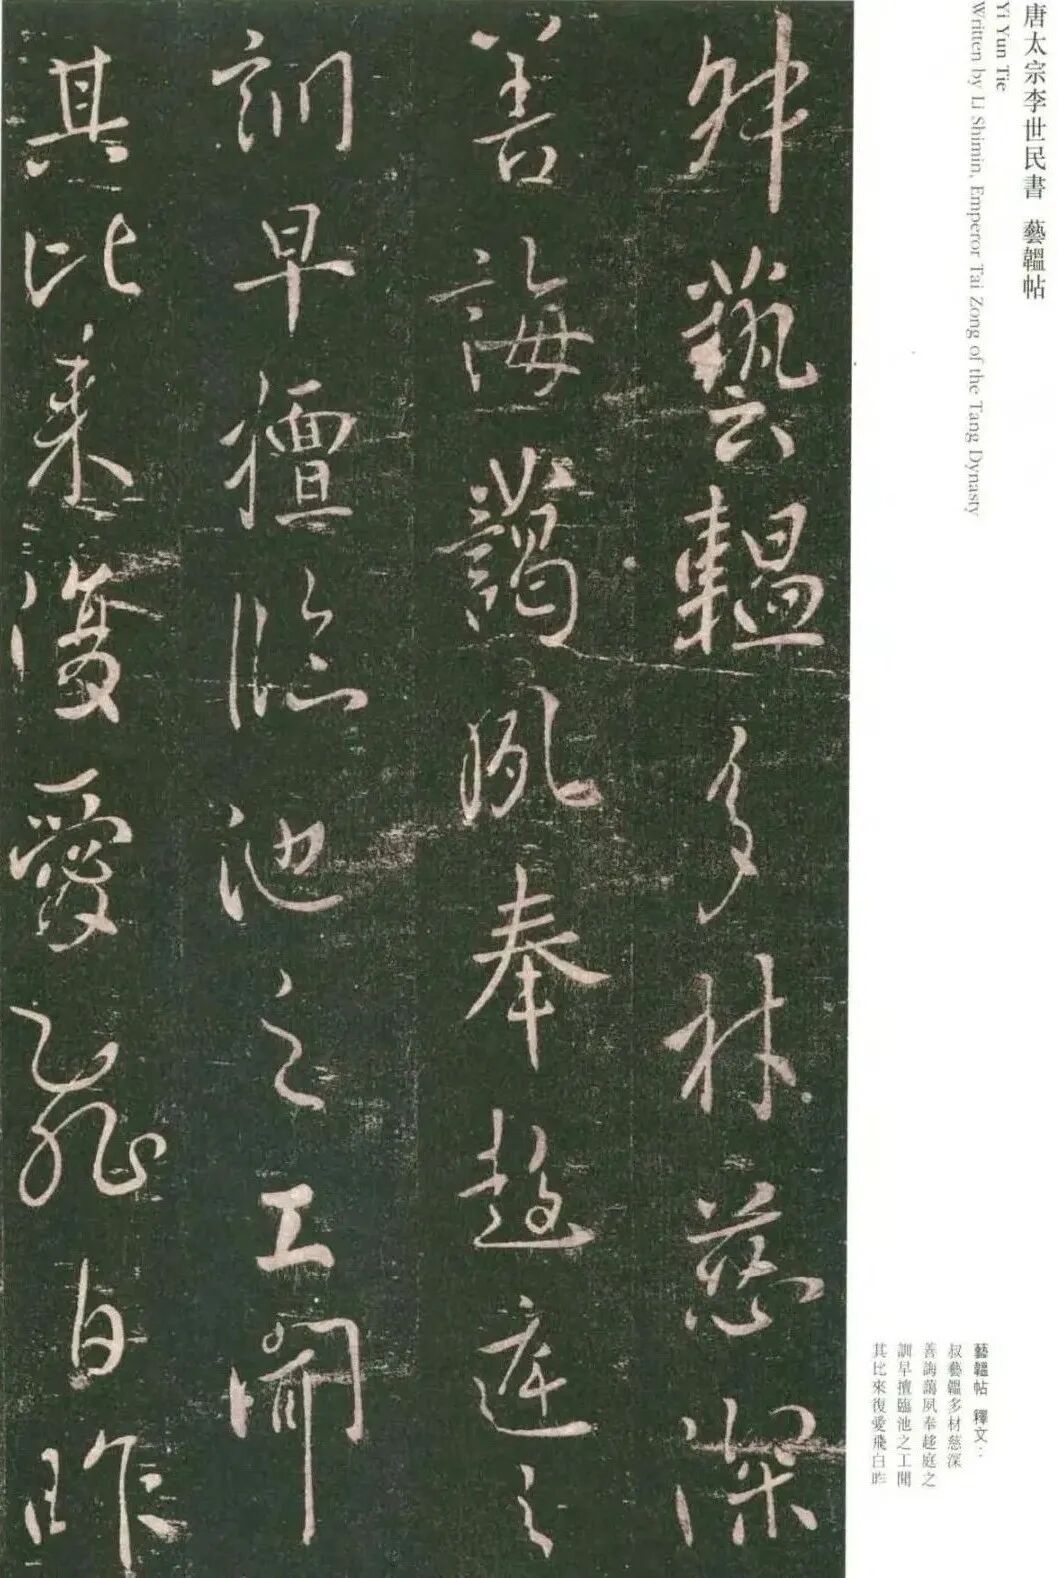 唐太宗李世民書 藝韞帖
Yi Yun Tie
Written by Li Shimin, Emperor Tai Zong of the Tang Dynasty
叔藝韞多材慈深
善誨藹夙奉趍庭之
訓早擅臨池之工聞
其比来復愛飛白昨
藝韞帖 釋文：
叔藝韞多材慈深
善誨藹夙奉趍庭之
訓早擅臨池之工聞
其比來復愛飛白昨